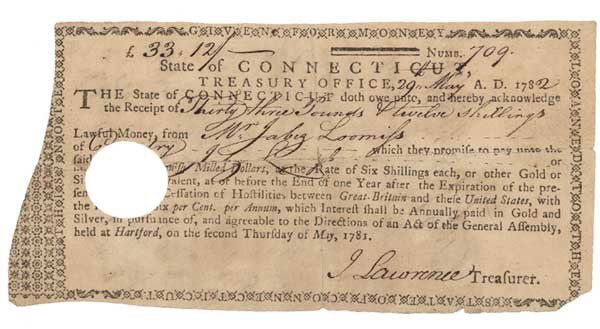 GIVEN FOR MONEY
£ 33 : 12/ NUMB. 709.
State of CONNECTICUT,
TREASURY OFFICE, 29th May A. D. 1782
THE State of CONNECTICUT doth owe unto, and hereby acknowledge
the Receipt of Thirty three Pounds & twelve shillings
Lawful Money, from Mr. Jabez Loomiss
of which they promise to pay unto the
said Milled Dollars, at the Rate of Six Shillings each, or other Gold or
Si at or before the End of one Year after the Expiration of the pre-
sen Cessation of Hostilities between Great-Britain and these United States, with
the per Cent. per Annum, which Interest shall be Annually paid in Gold and
Silver, in pursuance of, and agreeable to the Directions of an Act of the General Assembly,
held at Hartford, on the second Thursday of May, 1781.
J Lawrence Treasurer.